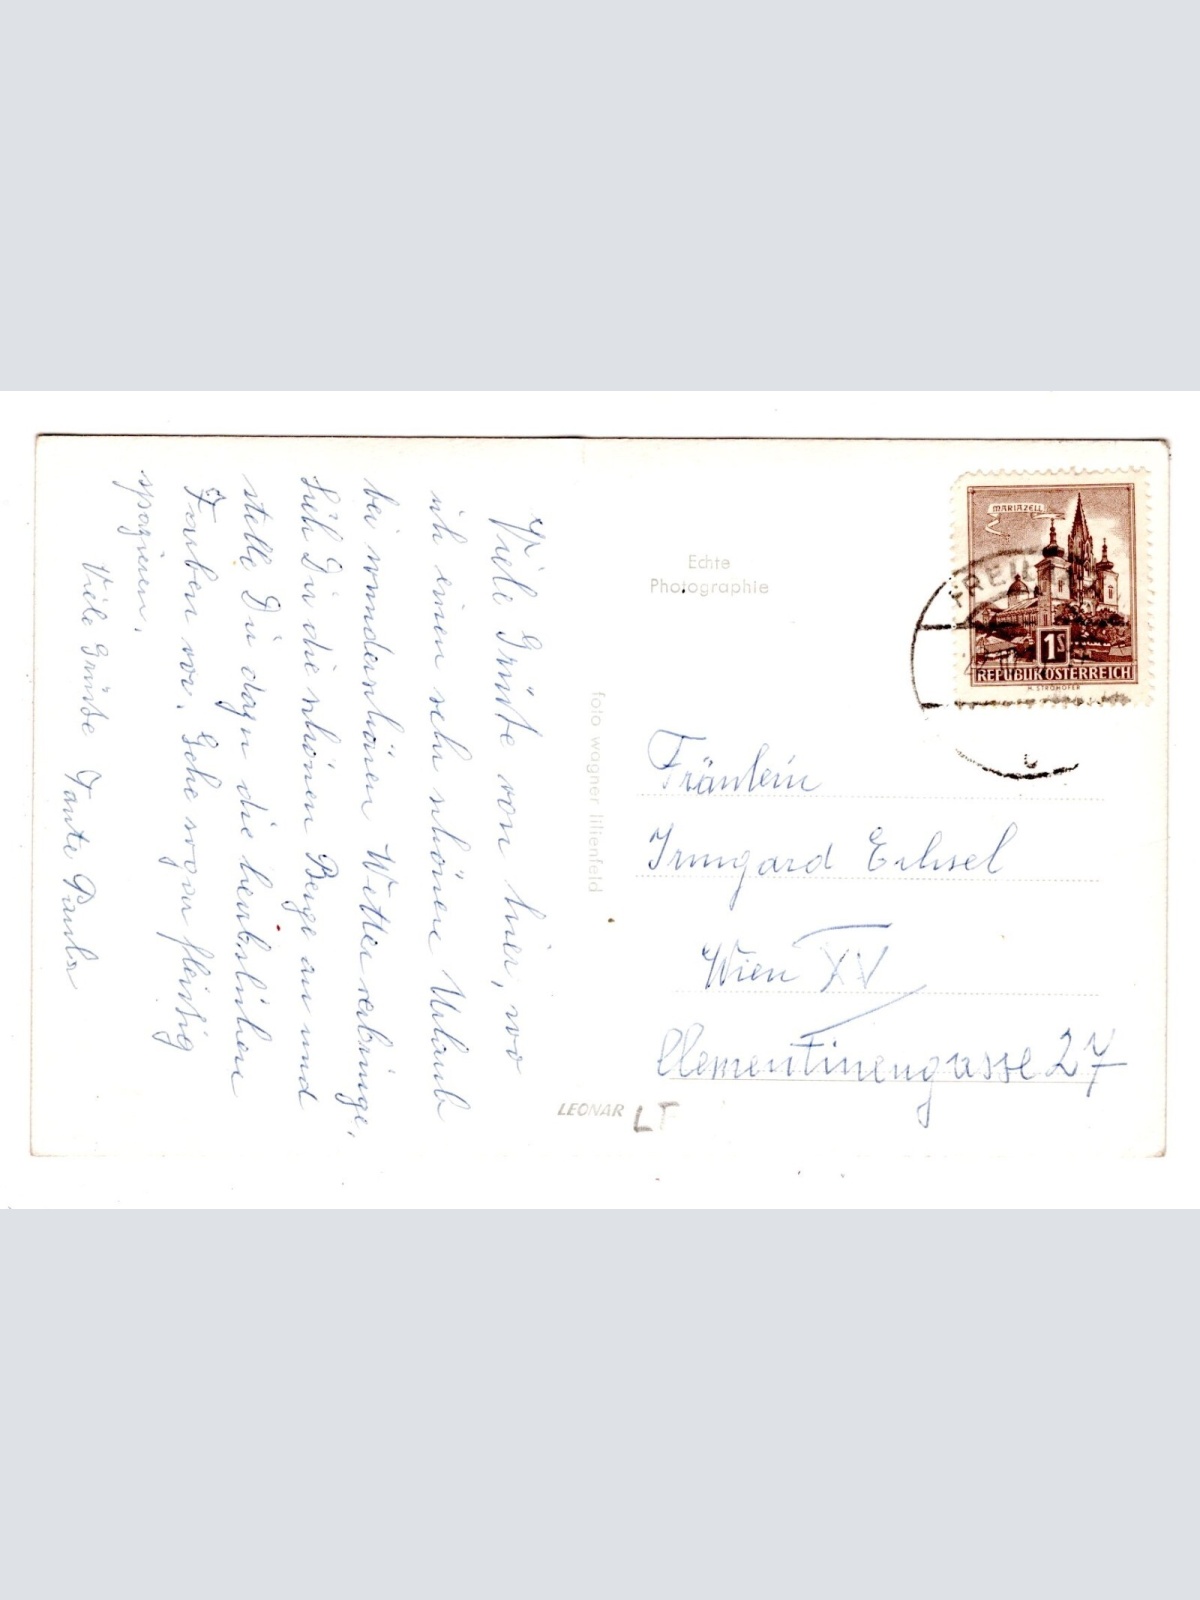 Viele Grüße von hier, wo
ich einen sehr schönen Urlaub
bei wunderschönen Wetter verbringe.
Sieh Dir die schönen Berge an und
stelle Dir dazu die herbstlichen
Farben vor. Gehe sogar fleißig
spazieren.
Viele Grüße Tante Paula
Echte
Photographie
foto wagner lilienfeld
LEONAR
LT
MARIAZELL
1S
REPUBLIK ÖSTERREICH
H. STROHOFER
Fräulein
Irmgard
Wien XV
Clementinengasse 27